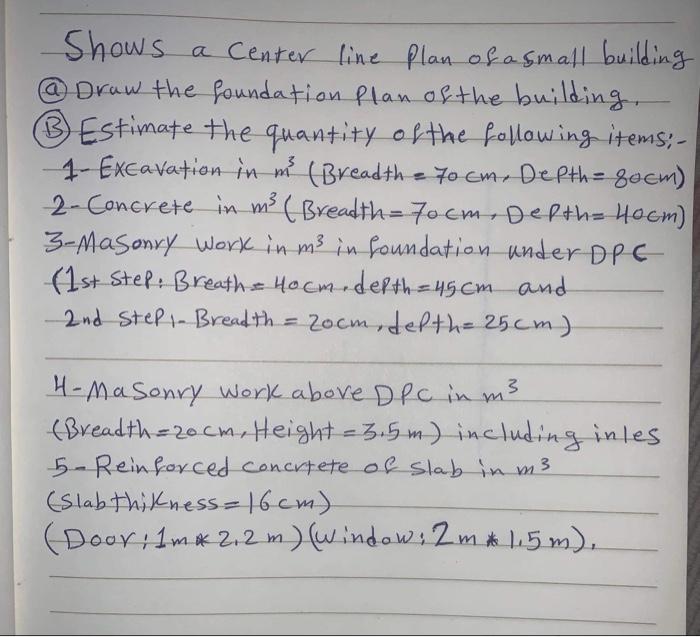 Shows a Center line Plan of a small building
ⓐ Draw the foundation Plan of the building.
Ⓑ Estimate the quantity of the following items:-
1- Excavation in m³ (Breadth = 70 cm, Depth= 80cm)
2- Concrete in m³ (Breadth= 70cm, Depth= 40cm)
3-Masonry Work in m³ in foundation under DPC
(1st Step: Breath= 40cm, depth=45cm and
2nd Step:- Breadth = 20cm, depth= 25cm)
4-Masonry Work above DPC in m³
(Breadth=20cm, Height = 3.5m) including inles
5-Reinforced concrtete of slab in m³
(Slab thikness=16cm)
(Door: 1m * 2.2m) (window: 2m * 1.5m).